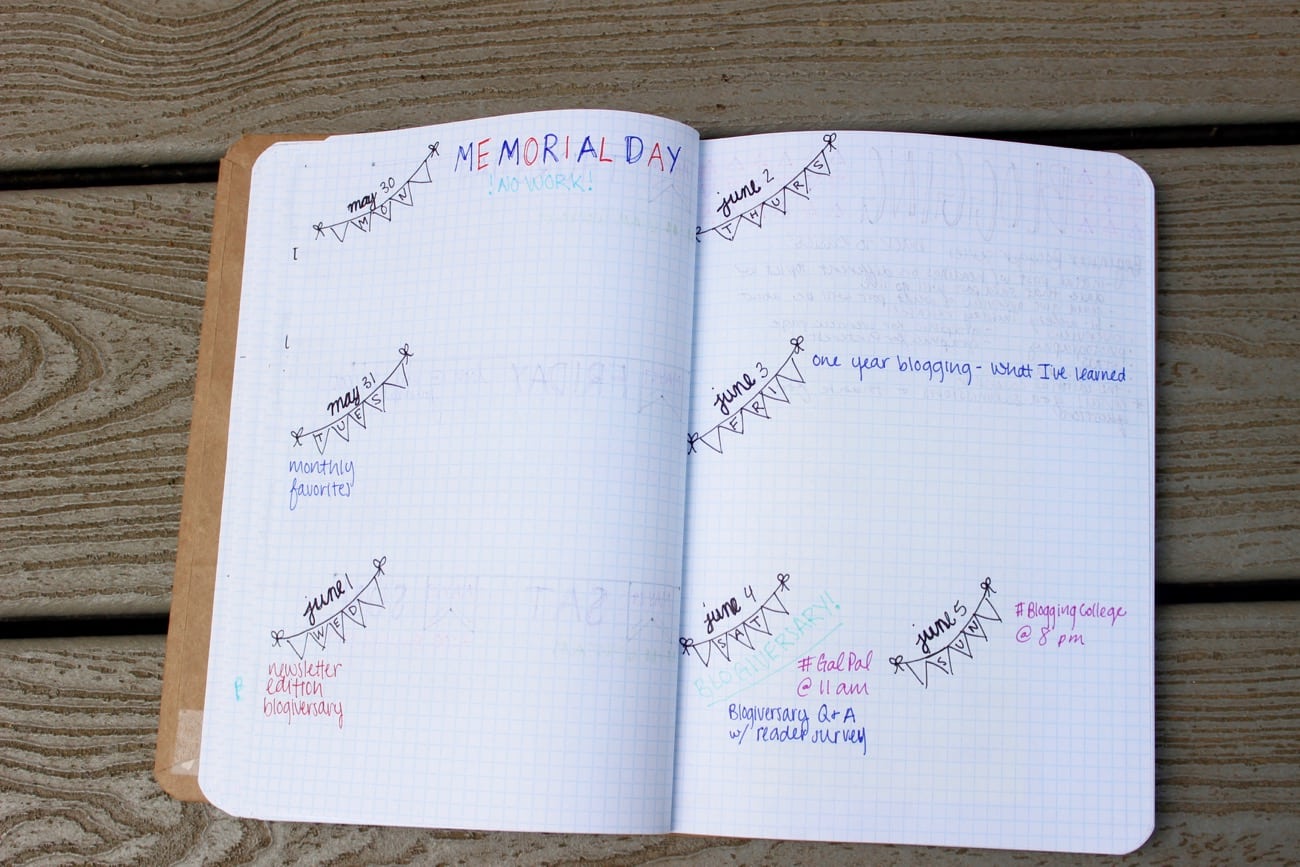 may 30
MON
MEMORIAL DAY
!NO WORK!
may 31
TUES
monthly
favorites
june 1
WED
newsletter
edition
blogiversary
june 2
THURS
june 3
FRI
one year blogging - what I've learned
june 4
SAT
BLOGIVERSARY!
#GalPal
@ 11 am
Blogiversary Q+A
w/ reader survey
june 5
SUN
#BloggingCollege
@ 8 pm